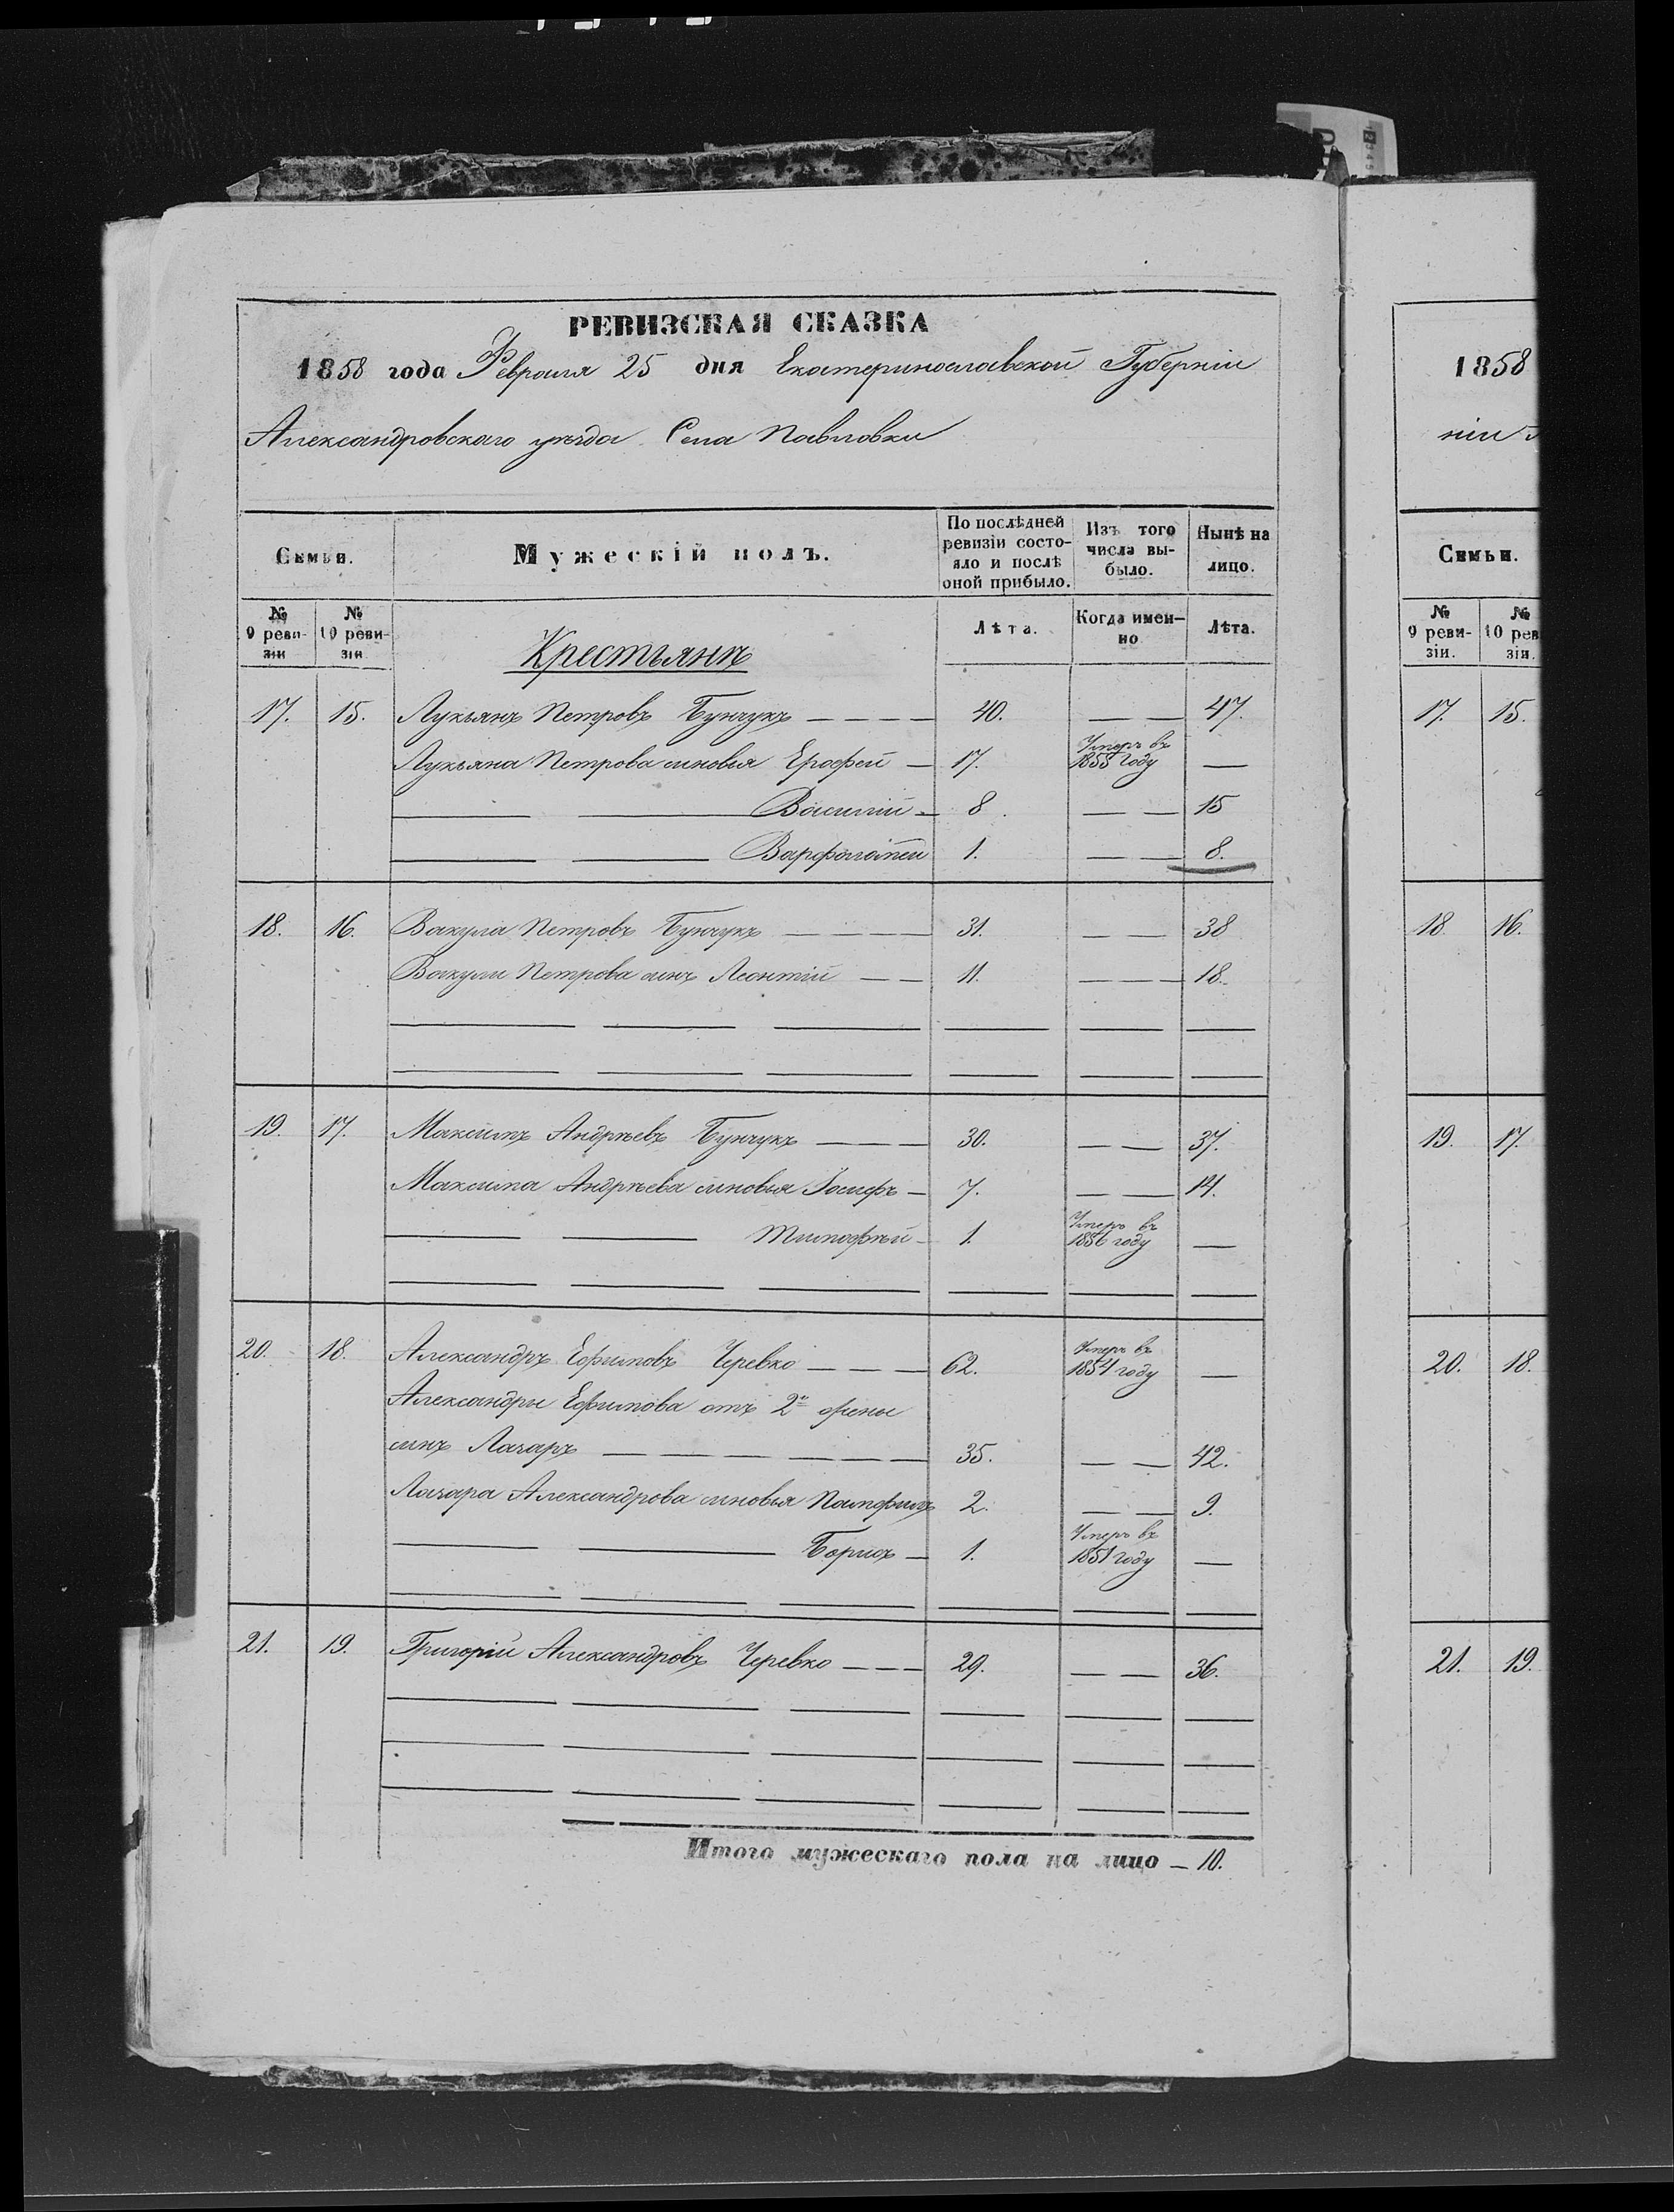 РЕВИЗСКАЯ СКАЗКА
1858 года Февраля 25 дня Екатеринославской Губерніи
Александровскаго уѣзда Села Павловки
Семьи.
Мужескій полъ.
По послѣдней ревизіи состояло и послѣ оной прибыло.
Изъ того числа выбыло.
Нынѣ на лицо.
№ 9 ревизіи
№ 10 ревизіи
Крестьянѣ
Лѣта.
Когда именно
Лѣта.
17. 15. Лукьянъ Петровъ Бунчукъ — — — — 40. — — 47.
Лукьяна Петрова сыновья Ерофей — 17. Умеръ въ 1855 году —
— — Василій — 8. — — 15
— — Варфоломей 1. — — 8.
18. 16. Вакула Петровъ Бунчукъ — — — — 31. — — 38
Вакулы Петрова сынъ Леонтій — — 11. — — — 18.
19. 17. Максимъ Андрѣевъ Бунчукъ — — — 30. — — 37.
Максима Андрѣева сыновья Іосифъ — 7. — — 14.
— — Тимофѣй — 1. Умеръ въ 1856 году —
20. 18. Александръ Ефимовъ Черевко — — — 62. Умеръ въ 1854 году —
Александры Ефимова отъ 2й жены
сынъ Лазарь — — — — — — 35. — — 42.
Лазаря Александрова сыновья Памфилъ 2. — — 9.
— — Борисъ — 1. Умеръ въ 1851 году —
21. 19. Григорій Александровъ Черевко — — — 29. — — 36.
Итого мужескаго пола на лицо — 10.
1858
ніи
Семьи.
№ 9 ревизіи.
№ 10 рев
зіи.
17. 15.
18. 16.
19. 17.
20. 18.
21. 19.